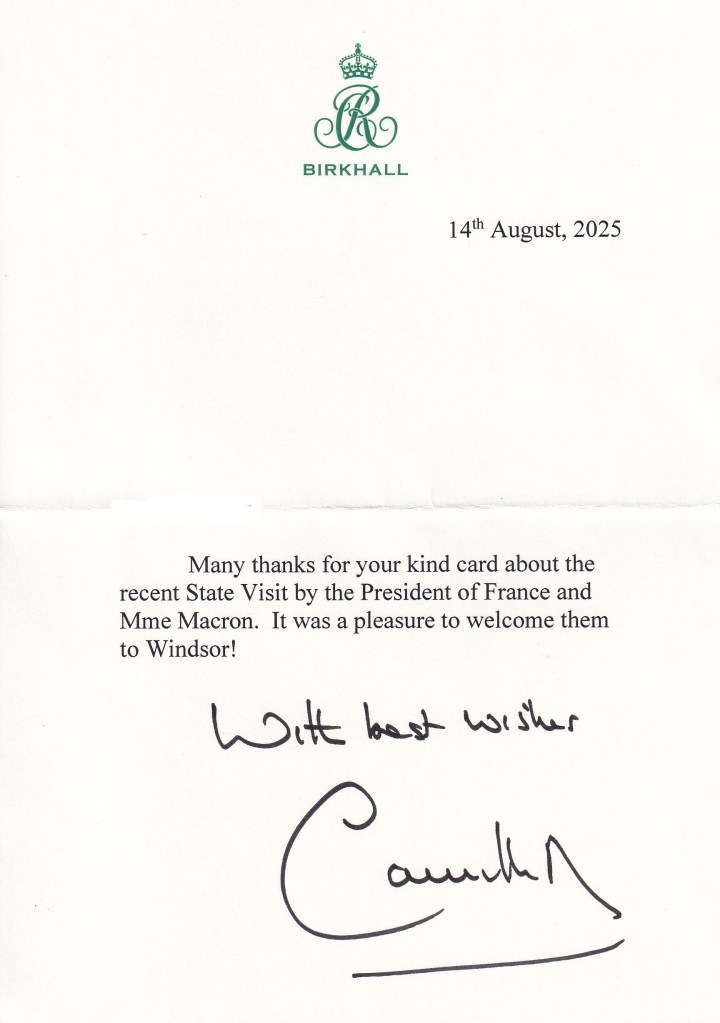 CR
BIRKHALL
14th August, 2025
Many thanks for your kind card about the
recent State Visit by the President of France and
Mme Macron.  It was a pleasure to welcome them
to Windsor!
With best wishes
Camilla R